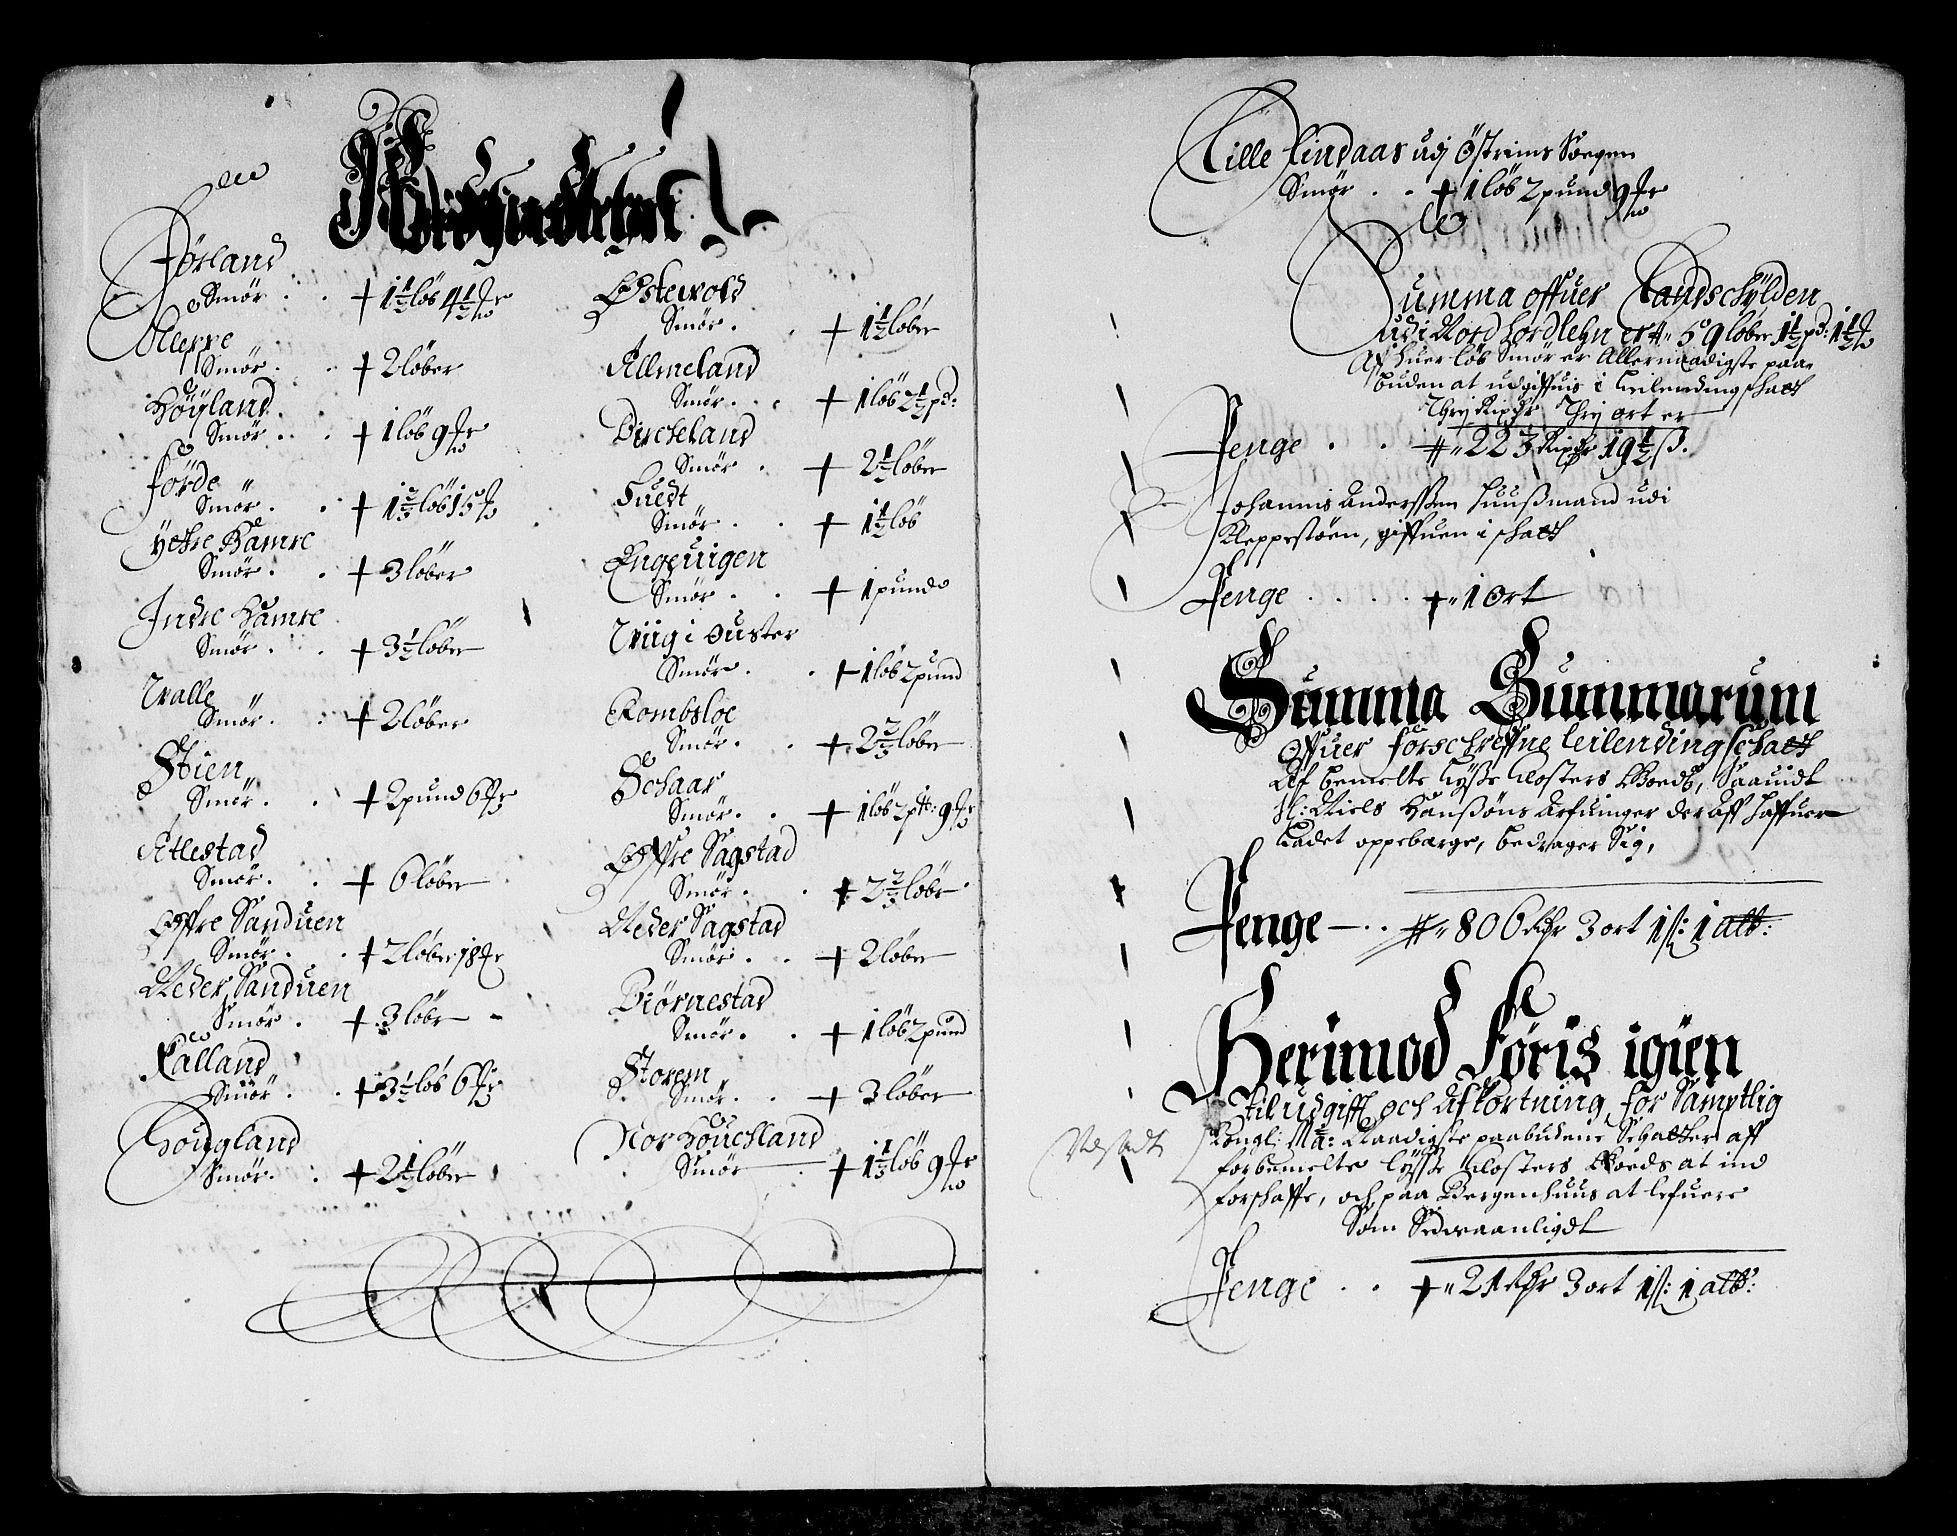 Førland
Smør . . 1½ løb 4½ ℔
Myrre
Smør . . 2 løber
Høyland
Smør . . 1 løb 9 ℔
Førde
Smør . . 1⅔ løb 15 ℔
Yttre Hamre
Smør . . 3 løber
Indre Hamre
Smør . . 3½ løber
Walle
Smør . . 2 løber
Stien
Smør . . 2 pund 6 ℔
Atlestad
Smør . . 6 løber
Øffre Sanduen
Smør . . 2 løber 18 ℔
Neder Sanduen
Smør . . 3 løber
Kalland
Smør . . 3½ løb 6 ℔
Hougland
Smør . . 2½ løber
Østewold
Smør . . 1½ løber
Allmeland
Smør . . 1 løb 2½ pd:
Birckeland
Smør . . 2½ løber
Tuedt
Smør . . 1½ løb
Engeuigen
Smør . . 1 pund
Wiig i Ouster
Smør . . 1 løb 2 pund
Rombsloe
Smør . . 2⅔ løber
Schaar
Smør . . 1 løb 2 pd: 9 ℔
Øffre Sagstad
Smør . . 2⅔ løbr
Neder Sagstad
Smør . . 2 løber
Biørnestad
Smør . . 1 løb 2 pund
Storem
Smør . . 3 løber
Nor Houchland
Smør . 1⅓ løb 9 ℔
Lille Lindaas udj Østrims Sogen
Smør . . 1 løb 2 pund 9 ℔
Summa offuer Landschylden
udi Nordhordlehn er 59 løber 1½ pd: 1½ ℔
Af huer løb Smør er Allernaadigste paa
buden at udgiffuis i Leilending schatt
Thrj Rixdr Thrj ort er
Penge . . 223 Rixdr 19½ ß.
Johannis Anderssen Huußmand udi
Kleppestöen, giffuen i schatt
Penge . . . . 1 Ort
Summa Summarum
Offuer forschreffne leilending schatt
Af bemelte Lysse Closters Goeds, Saauidt
Sl: Niels Hanßøns Arfuinger der aff haffuer
Ladet oppebarge, bedrager Sig,
Penge . . 806 Rdr 3 ort 1 ß: 1 alb:
Herimod føris igien
Til udgifft och Afkortning, for Samptlig
Kongl: Ma: Naadigste paabudene Schatter aff
forbemelte Lysse Closters Goeds at ind
forschaffe, och paa Bergenhuus at lefuere
Som Sedwaanligdt
Penge . . 21 Rdr 3 ort 1 ß: 1 alb: